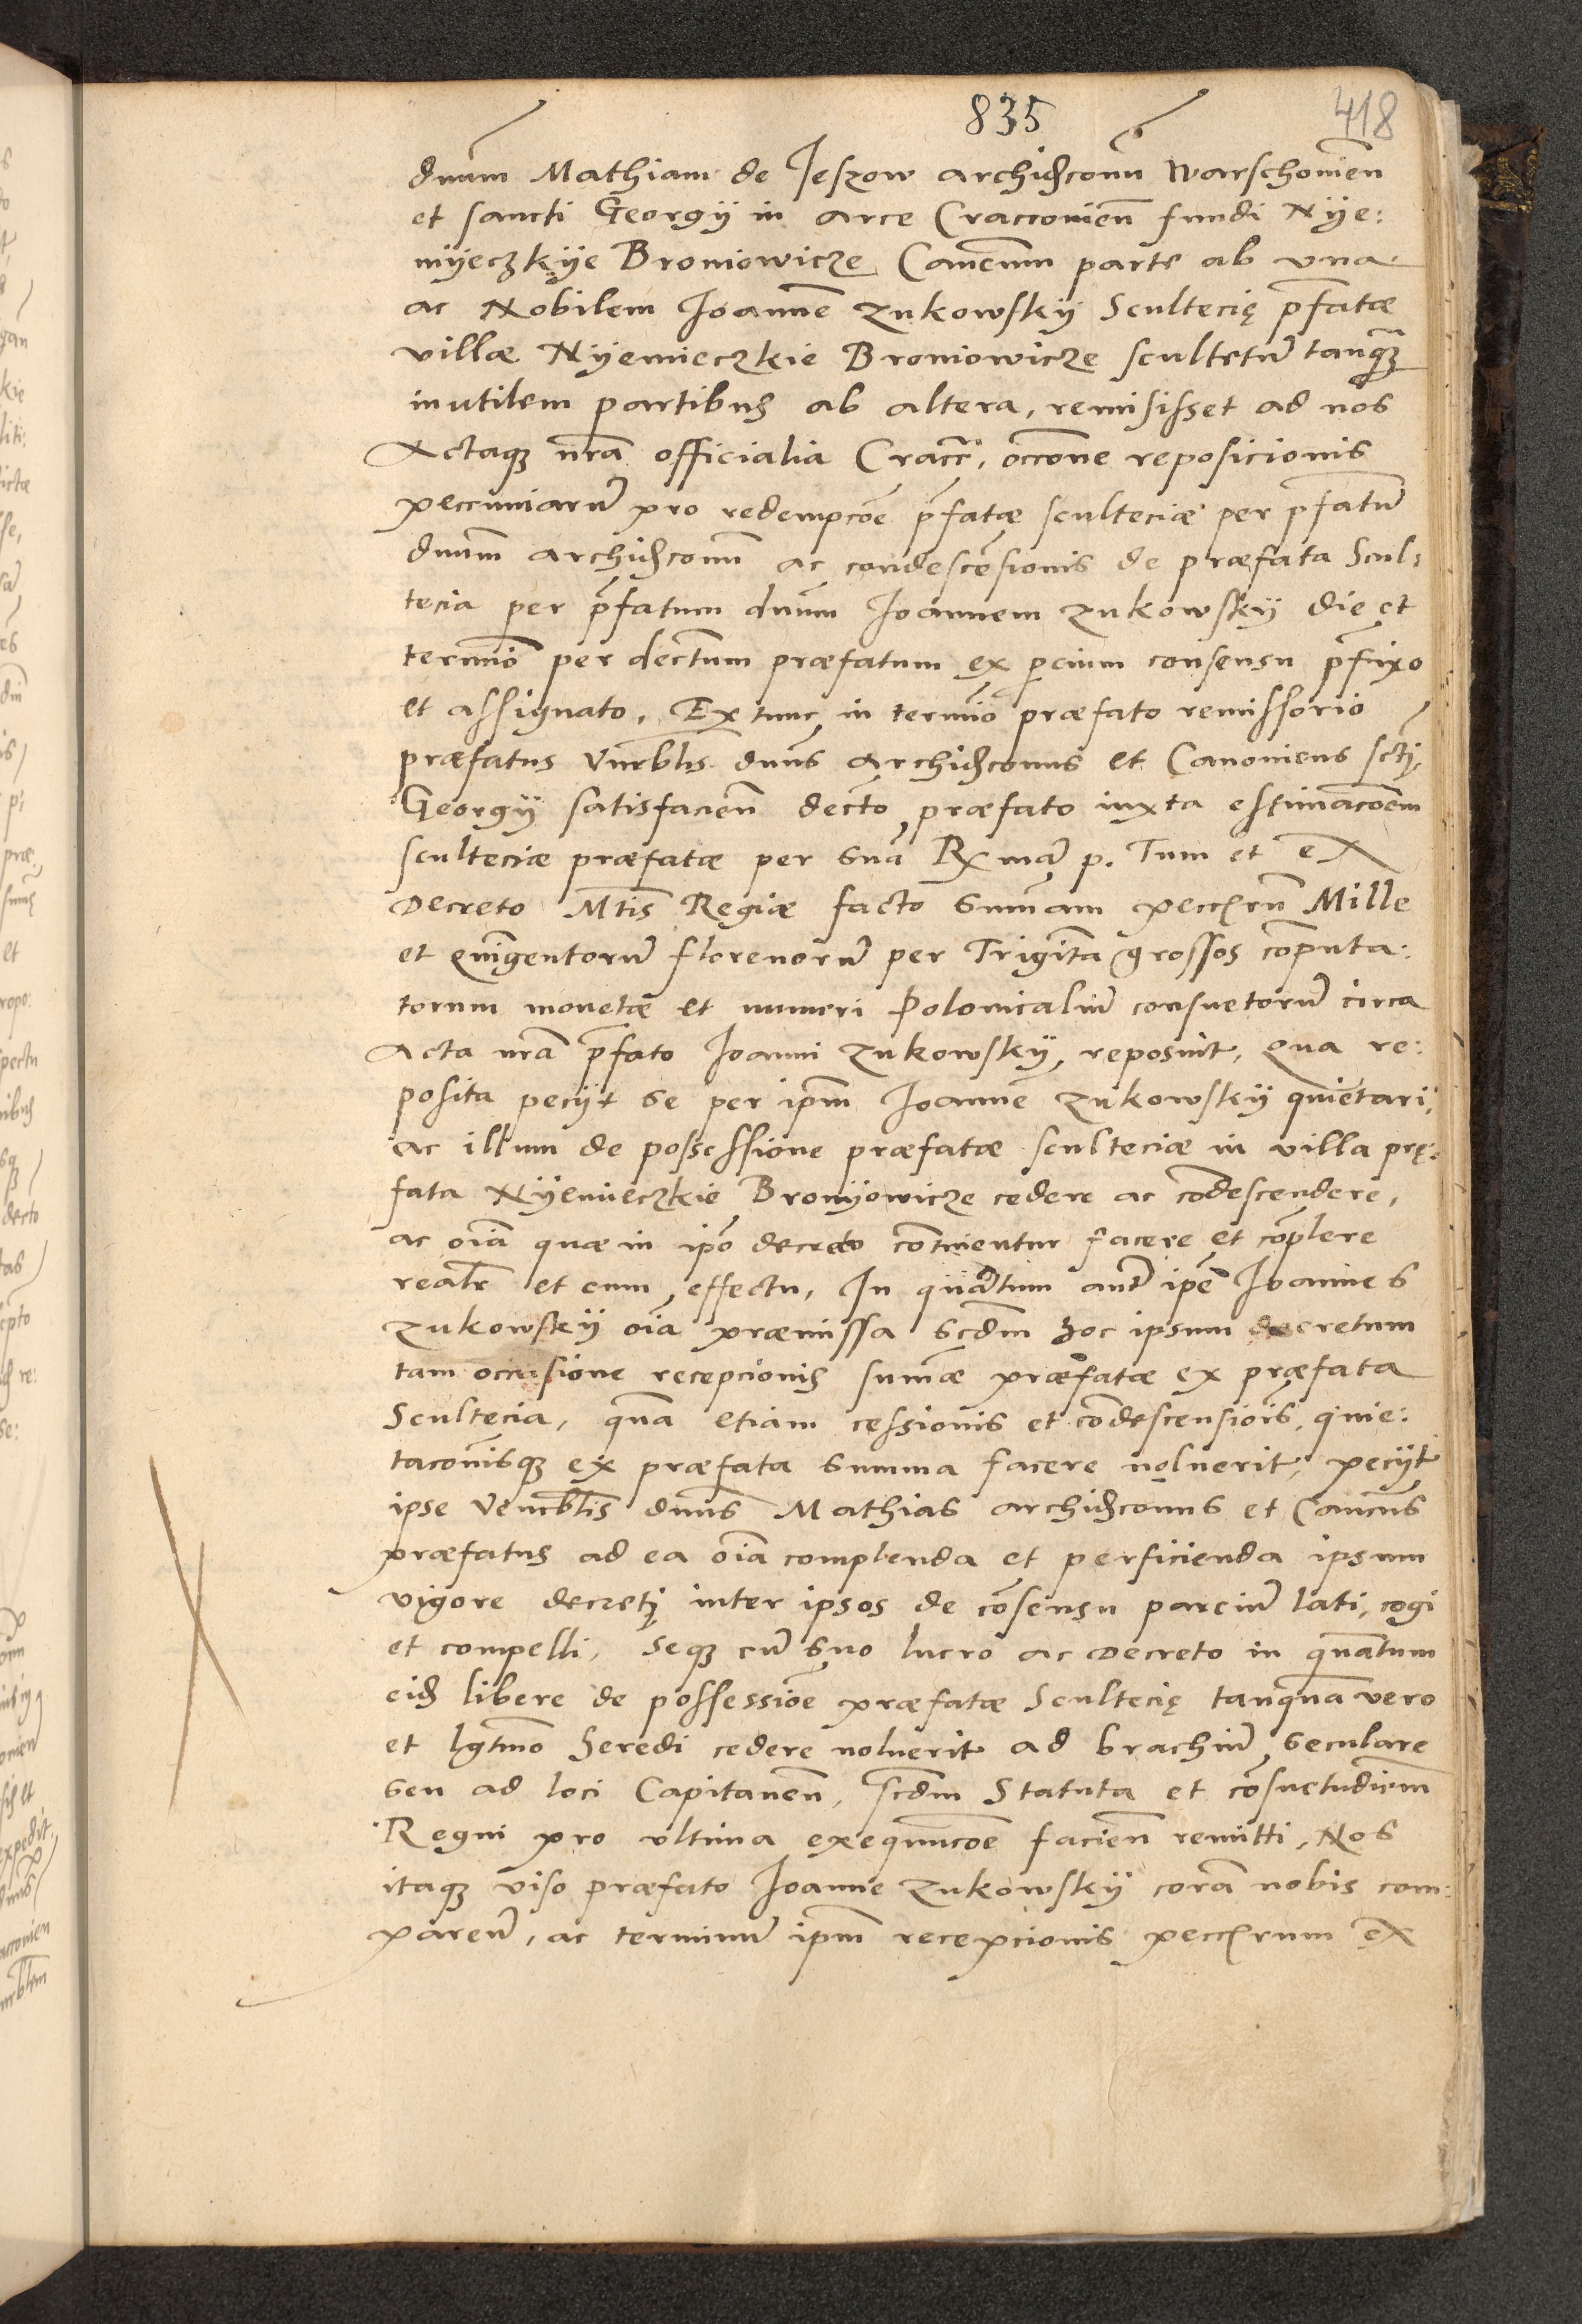 835
418
dnum Mathiam de Jeszow archidconum Warschouien
et sancti Georgÿ in arce Cracouien fundi Nye:
myeczkÿe Broniowicze Canēcum parte ab vna
ac Nobilem Joannē Zukowskÿ Scultecię p̄fatæ
villæ Nÿemieczkie Broniowicze scultetū tanqȝ
inutilem partibus ab altera, remisisset ad nos
Actaqȝ nra officialia Cracc̄, occōne reposicionis
peccuniarū pro redempcōe p̄fatæ sculteciæ per p̄fatū
dnum archidconum ac condescēsionis de præfata Scul:
tecia per p̄fatum dnum Joannem Zukowskÿ die et
termīo per dectum præfatum ex parcium consensu p̄fixo
et assignato, Ex tunc in termīo præfato remissorio
præfatus Vnrblis dnus Archidconus et Canonicus scti
Georgÿ satisfacien decto præfato iuxta estimacōem
scultecie præfatæ per suā Rx mā p. Tum et ex
Decreto Mtis Regiæ facto Sum̄am pecc͞rum Mille
et quīgentorū florenorū per Triginta grossos cōputa:
torum monetæ et numeri Polonicaliū consuetorū circa
Acta nra p̄fato Joanni Zukowskÿ, reposuit, Qua re:
posita pecÿt se per ipm Joannē Zukowskÿ quietari,
ac illum de possessione præfatæ scultecie in villa prę:
fata Nÿemieczkie Bronÿowicze cedere ac cōdescendere,
ac oīa quæ in ipo decreto cōtinentur facere et cōplere
realr et cum effectu, In quātum aut ipe Joannes
Zukowskÿ oīa præmissa scdm hoc ipsum decretum
tam occasione recepcionis sum̄æ præfatæ ex præfata
Scultecia, quā etiam cessionis et cōdescensiōis, quie:
tacōnisqȝ ex præfata summa facere noluerit, pecÿt
ipse Venrblis dnus Mathias archidconus et Cancus
præfatus ad ea oīa complenda et perficienda ipsum
vigore decreti inter ipsos de cōsensu parciū lati, cogi
et compelli, seqȝ cū suo lucro ac Decreto in quātum
eid libere de possessiōe præfatæ Scultecię tanquā vero
et lgtmo heredi cedere noluerit ad brachiū seculare
seu ad loci Capitaneū, scdm Statuta et cōsuetudīem
Regni pro vltima exequucōe facien remitti, Nos
itaqȝ viso præfato Joanne Zukowskÿ corā nobis com:
parēn, ac terminū ipm recepcionis pecc͞rum ex